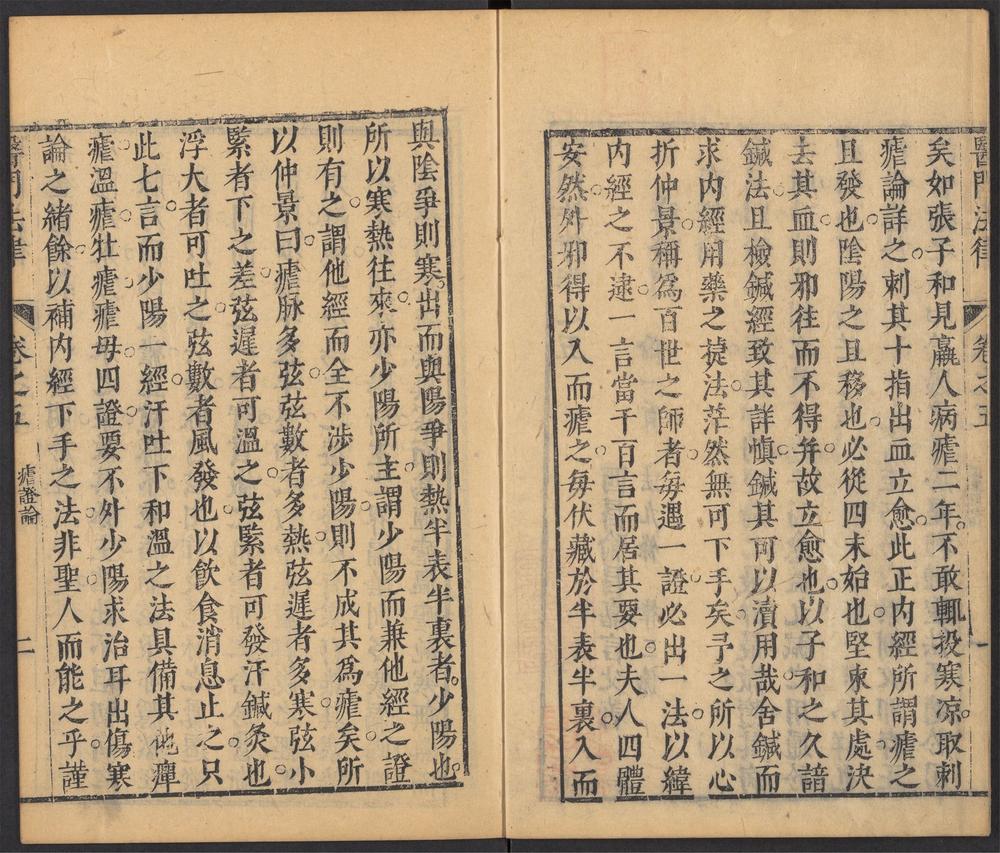 醫門法律 卷之五 一
矣如張子和見羸人病瘧二年不敢輒投寒凉取刺
瘧論詳之刺其十指出血立愈此正内經所謂瘧之
且發也陰陽之且移也必從四末始也堅束其處決
去其血則邪往而不得并故立愈也以子和之久諳
鍼法且檢鍼經致其詳慎鍼其可以瀆用哉舍鍼而
求内經用藥之㨗法茫然無可下手矣予之所以心
折仲景稱爲百世之師者每遇一證必出一法以緯
内經之不逮一言當千百言而居其要也夫人四體
安然外邪得以入而瘧之每伏藏於半表半裏入而
與陰爭則寒出而與陽爭則熱半表半裏者少陽也
所以寒熱往來亦少陽所主謂少陽而兼他經之證
則有之謂他經而全不涉少陽則不成其爲瘧矣所
以仲景曰瘧脉多弦弦數者多熱弦遲者多寒弦小
緊者下之差弦遲者可溫之弦緊者可發汗鍼灸也
浮大者可吐之弦數者風發也以飲食消息止之只
此七言而少陽一經汗吐下和溫之法具備其他癉
瘧溫瘧牡瘧瘧母四證要不外少陽求治耳出傷寒
論之緒餘以補内經下手之法非聖人而能之乎謹
醫門法律 卷之五 瘧證論 二